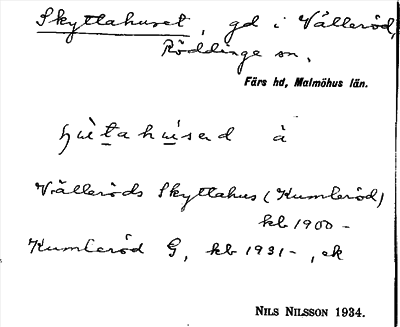 Skyttahuset, gd i Vålleröd,
Röddinge sn,
Färs hd, Malmöhus län.
à
Vålleröds Skyttahus (Kumleröd)
kb 1900 -
Kumleröd G, kb 1931 - , ek
NILS NILSSON 1934.